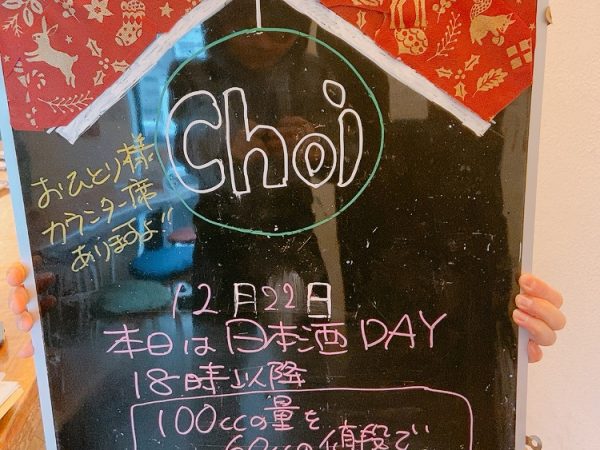 Choi
おひとり様
カウンター席
ありますよ!!
12月22日
本日は日本酒DAY
18時以降
100ccの量を
60ccの値段で